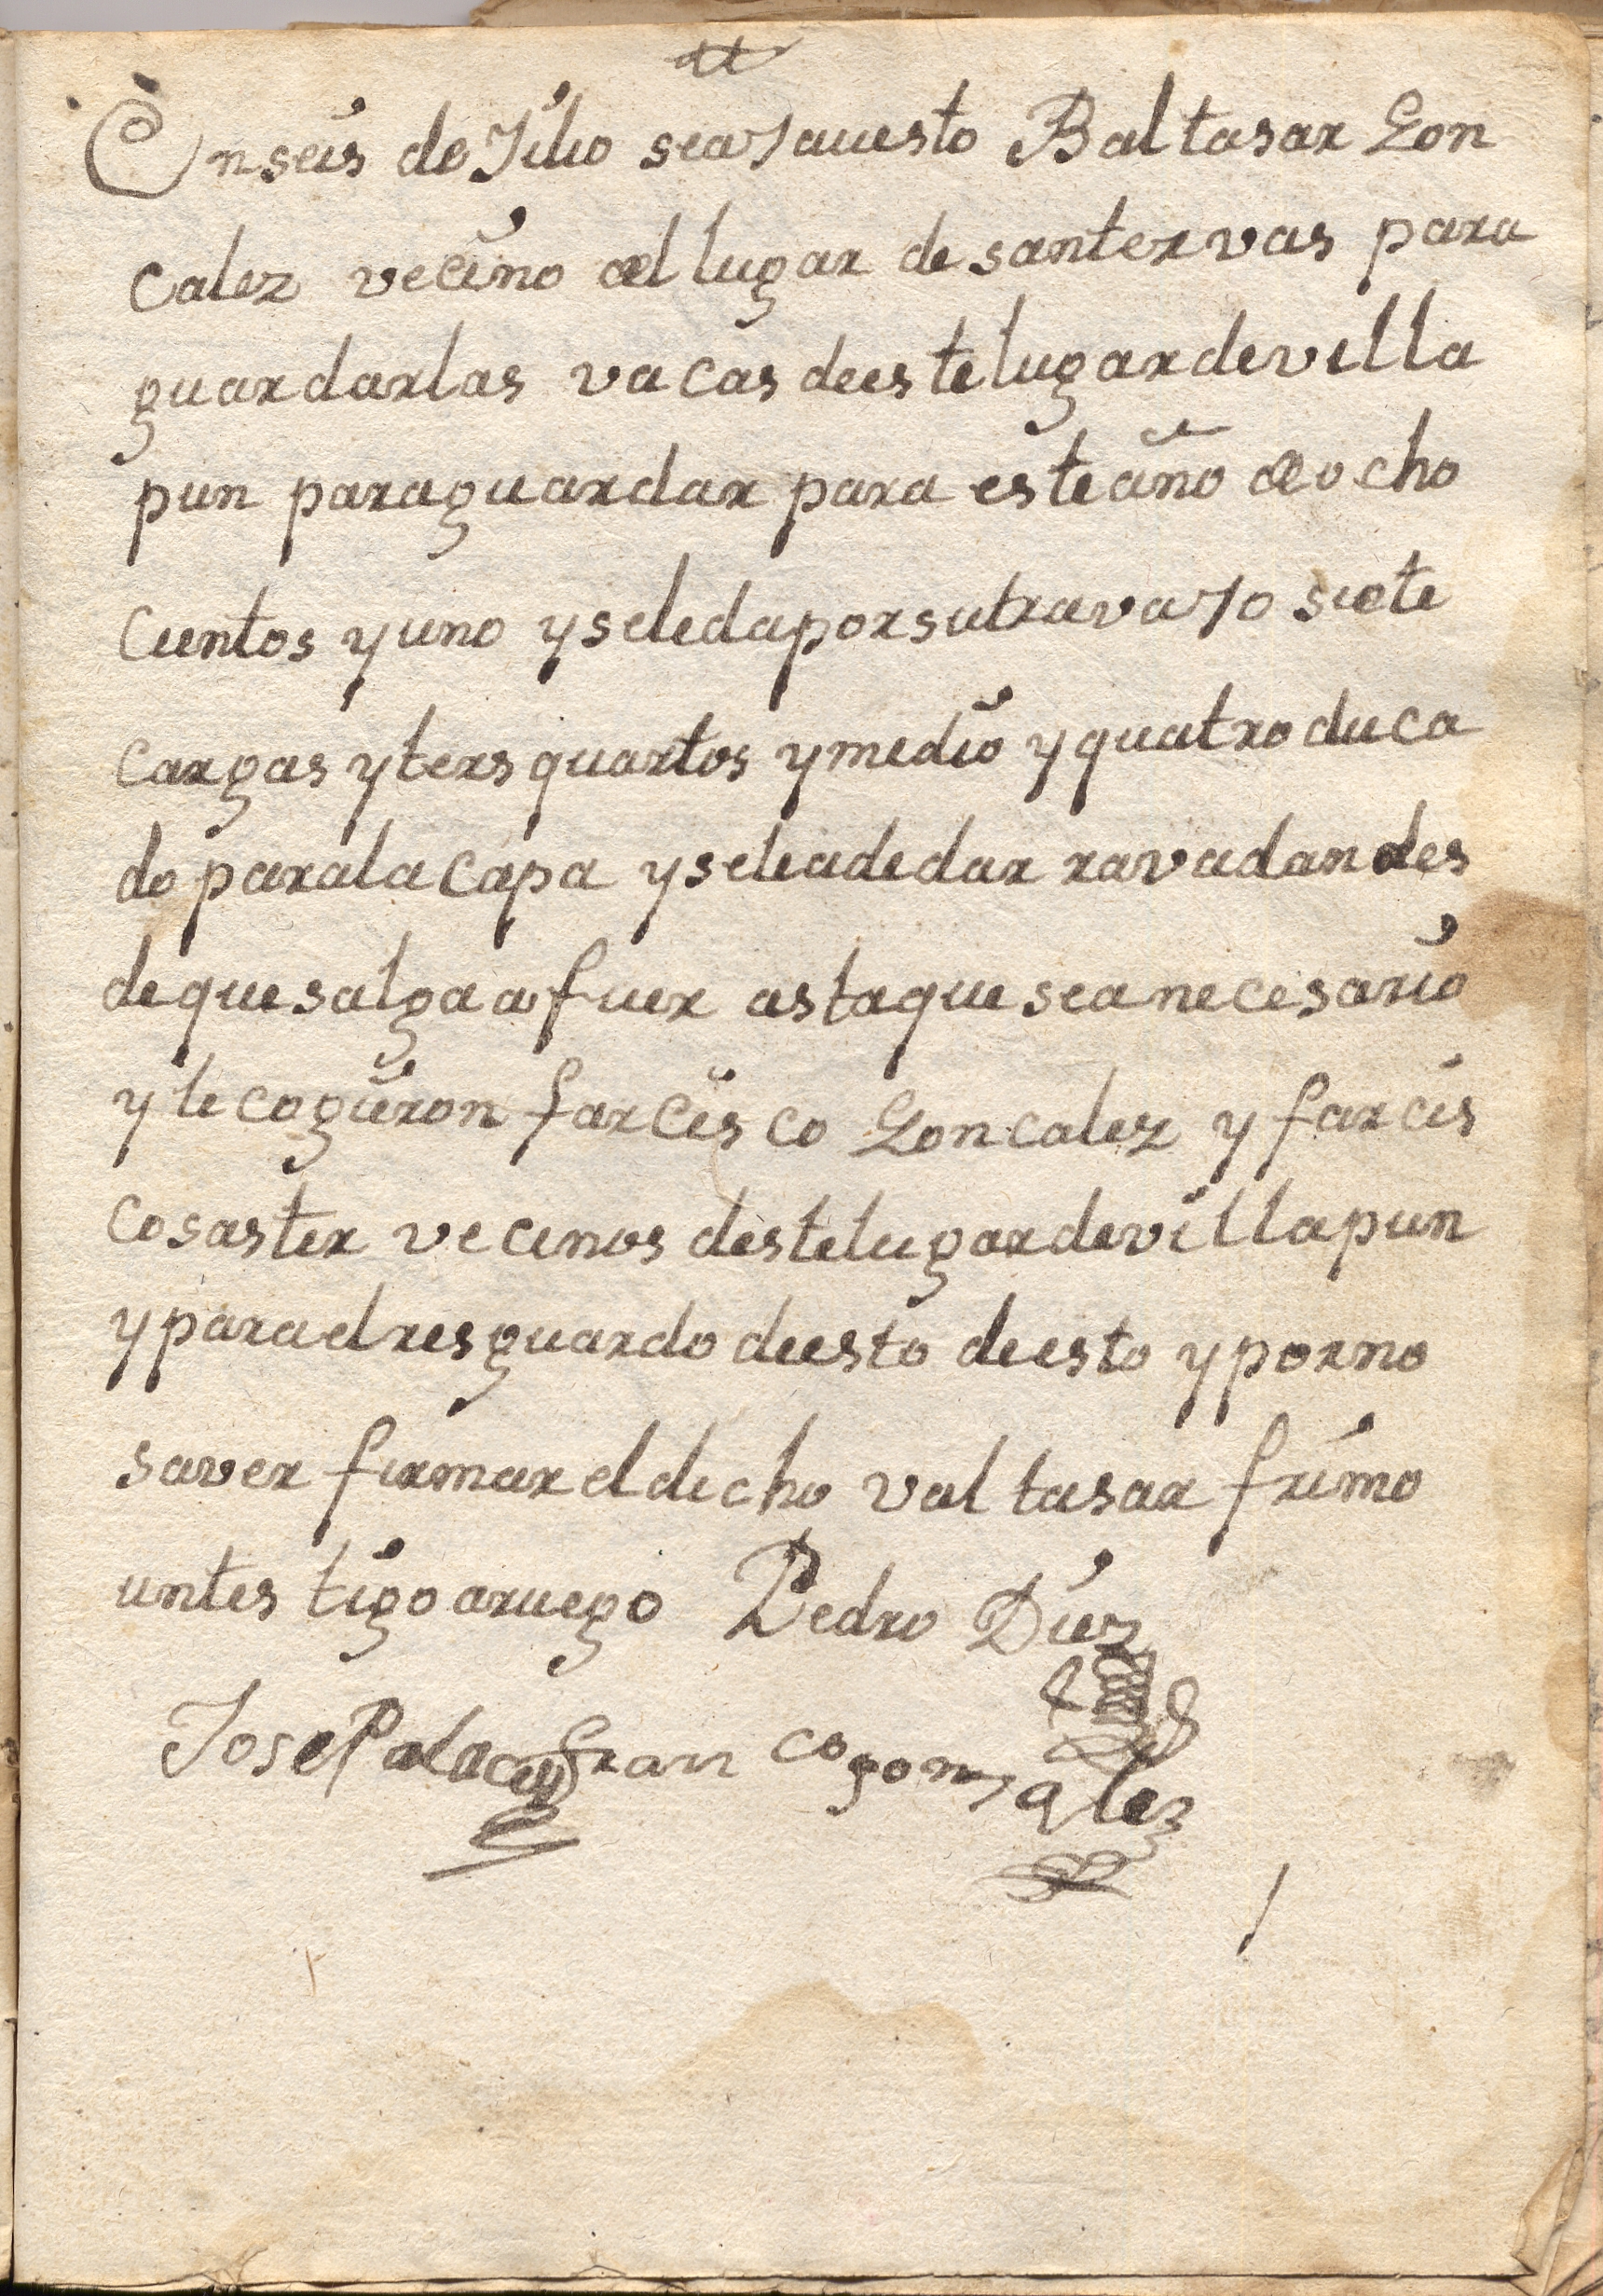 En seis de Julio sea Jauesto Baltasar Gon
calez vecino del lugar de santervas para
guardarlas vacas deeste lugar devilla
pun paraguardar para este año de ocho
cientos y uno yseledaporsutravaJo siete
cargas yters quartos ymedio yquatro duca
do paralacapa yseleadedar ravadan des
dequesalga afuer astaquesea necesario
yle cogieron farcisco Goncalez y farcis
cosaster vecinos destelugardevillapun
yparaelresguardo deesto deesto yporno
saver firmareldicho valtasar frimo
untestigo aruego Pedro Diez
Jose Palacios Franco gonzalez